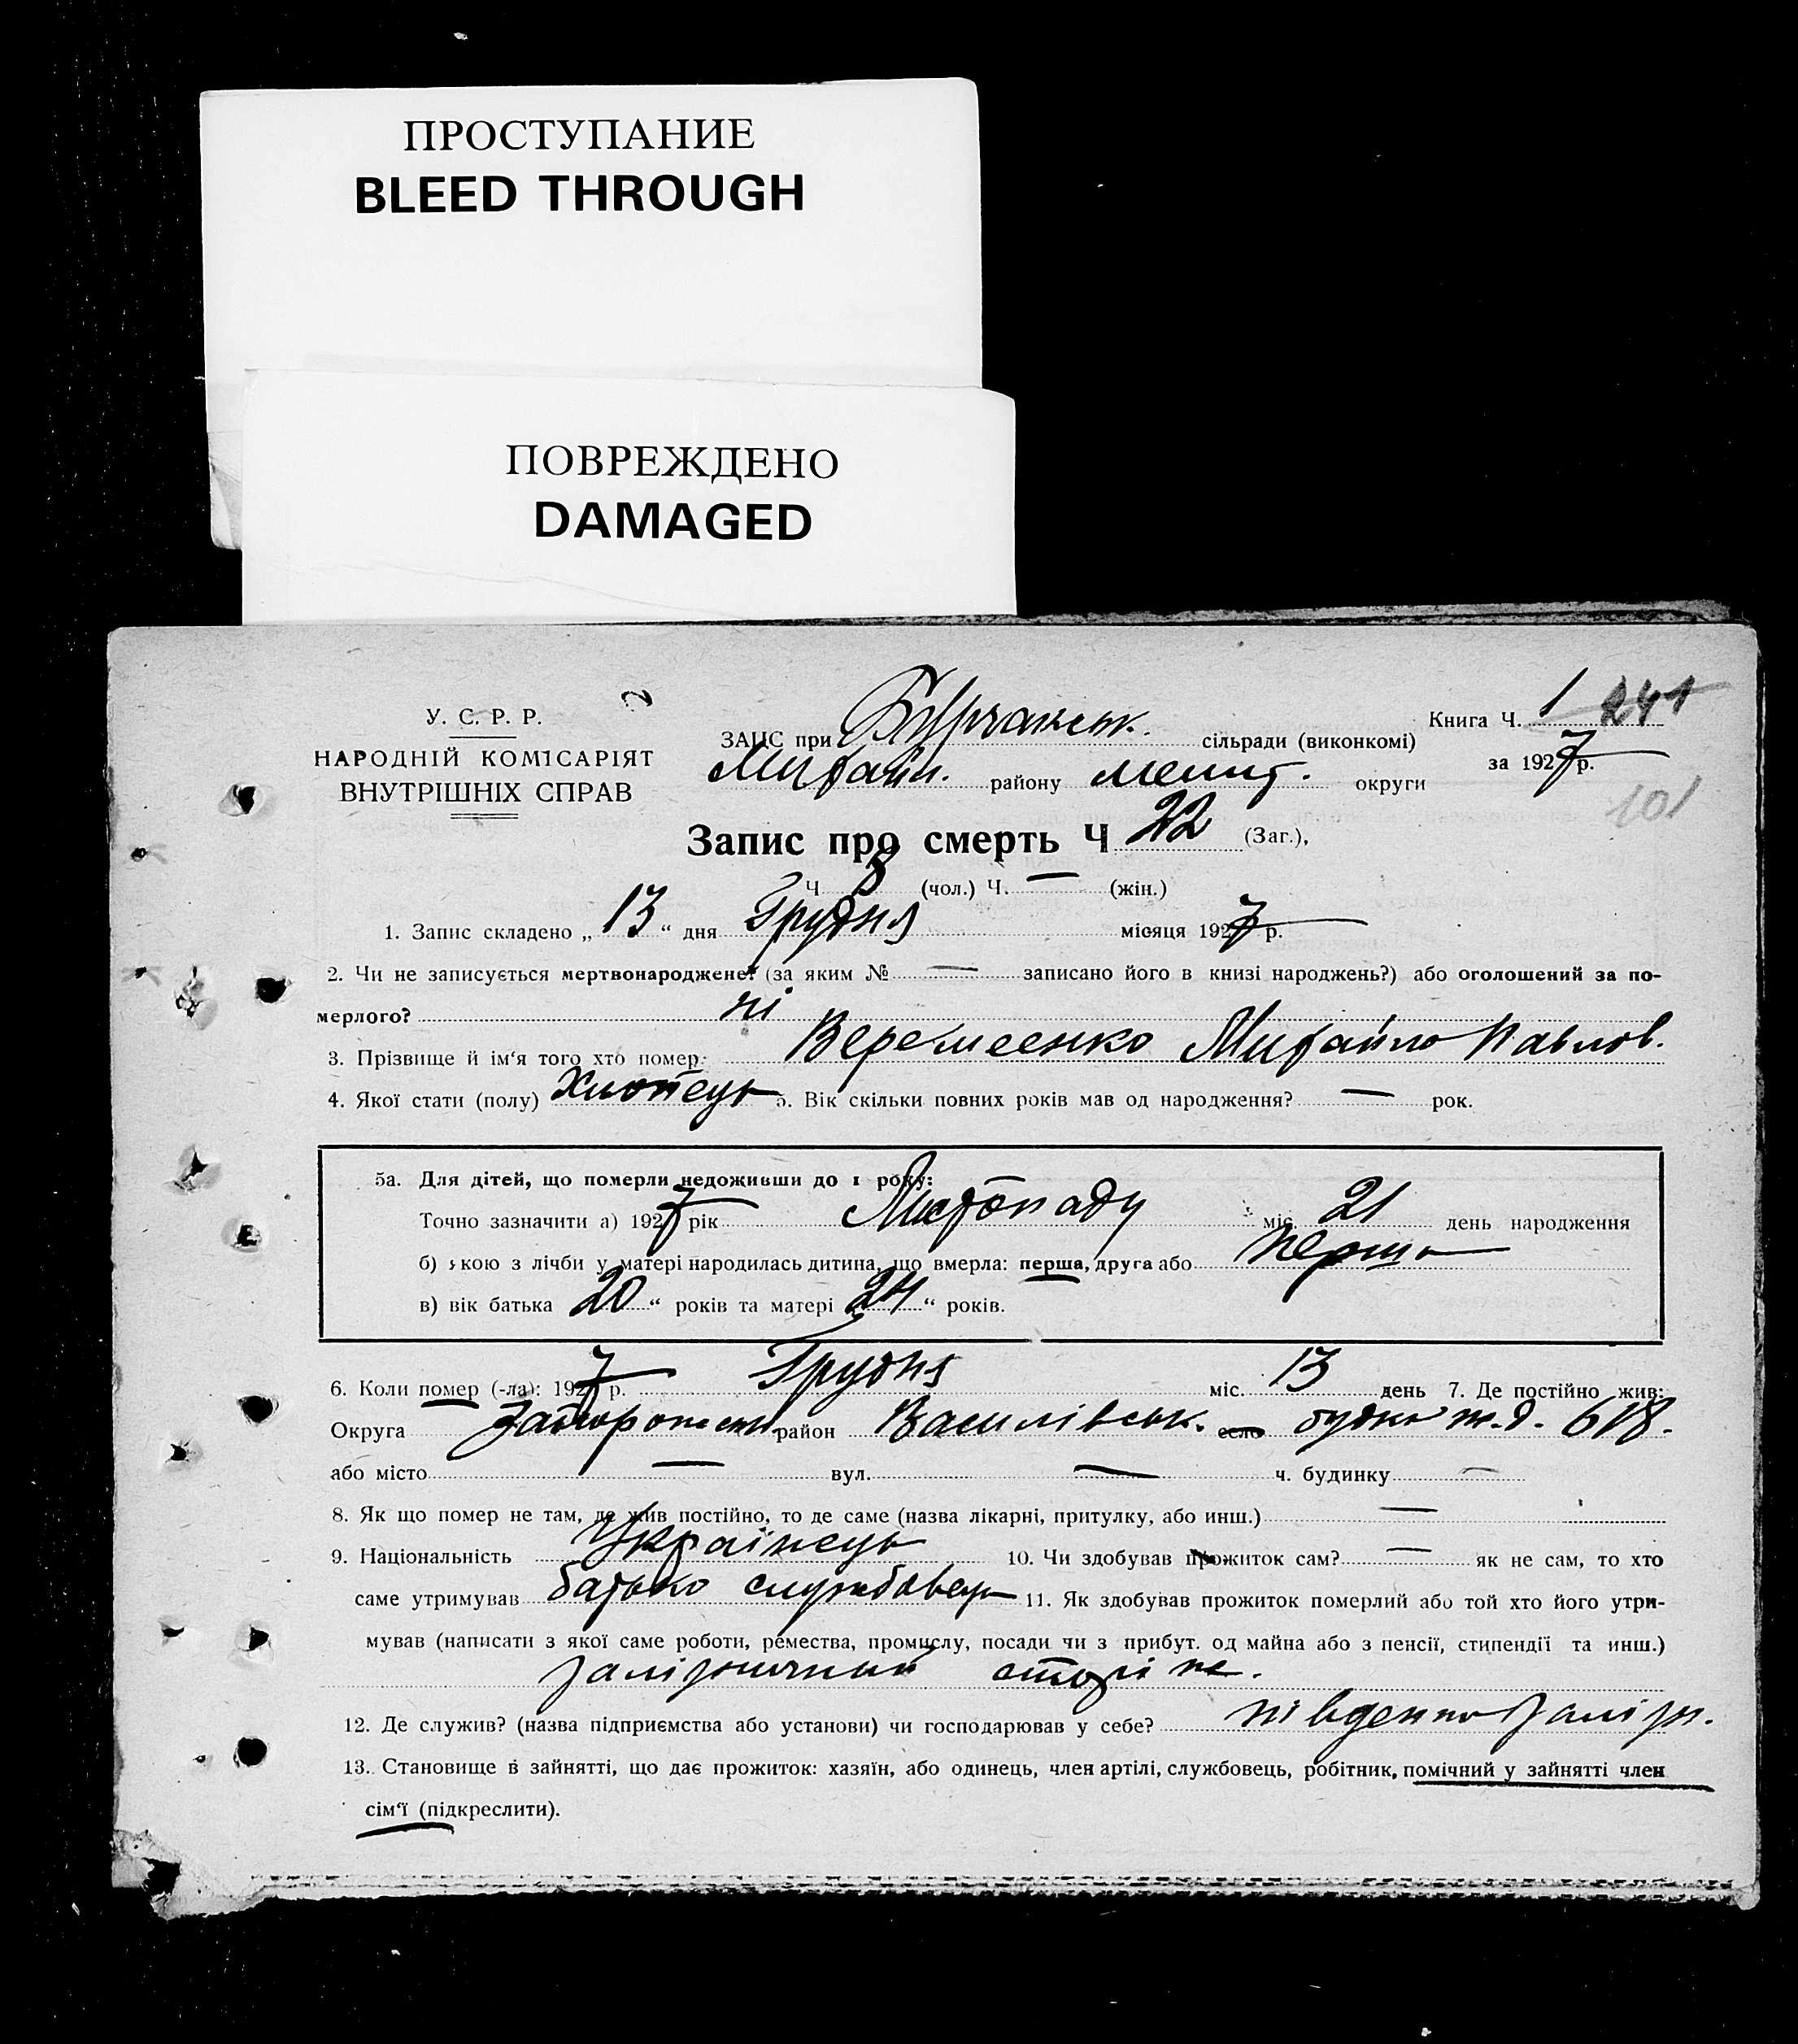 ПРОСТУПАНИЕ
BLEED THROUGH
ПОВРЕЖДЕНО
DAMAGED
У. С. Р. Р.
НАРОДНІЙ КОМІСАРІЯТ
ВНУТРІШНІХ СПРАВ
2
Книга Ч. 1 241
ЗАЦС при Бурчакськ. сільради (виконкомі)
за 1927 р.
Михайл. району Мелит. округи
101
Запис про смерть Ч 22 (Заг.),
Ч 8 (чол.) Ч. — (жін.)
1. Запис складено „ 13 “ дня Грудня місяця 1927 р.
2. Чи не записується мертвонароджене? (за яким № — записано його в книзі народжень?) або оголошений за по-
мерлого? ні
3. Прізвище й ім‘я того хто помер Веремеенко Михайло Павлов.
4. Якої стати (полу) Хлопець 5. Вік скільки повних років мав од народження? — рок.
5а. Для дітей, що померли недоживши до 1 року:
Точно зазначити а) 1927 рік Листопаду міс. 21 день народження
б) якою з лічби у матері народилась дитина, що вмерла: перша, друга або перша
в) вік батька 20 “ років та матері 24 “ років.
6. Коли помер (-ла): 1927 р. Грудня міс. 13 день 7. Де постійно жив:
Округа район Василівськ. село будка ж.д. 618.
або місто — вул. — ч. будинку —
8. Як що помер не там, де жив постійно, то де саме (назва лікарні, притулку, або инш.) —
9. Національність Українець 10. Чи здобував прожиток сам? — як не сам, то хто
саме утримував батько службовець 11. Як здобував прожиток померлий або той хто його утри-
мував (написати з якої саме роботи, ремества, промислу, посади чи з прибут. од майна або з пенсії, стипендії та инш.)
залізничний
12. Де служив? (назва підприємства або установи) чи господарював у себе? південно залізн.
13. Становище в зайнятті, що дає прожиток: хазяїн, або одинець, член артілі, службовець, робітник, помічний у зайнятті член
сім‘ї (підкреслити).